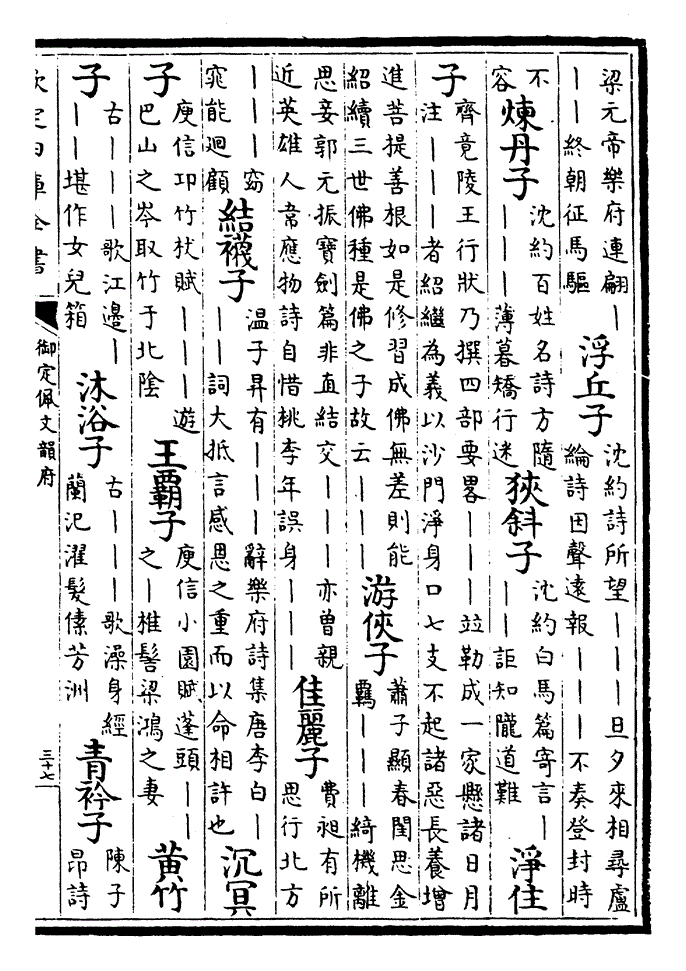 梁元帝樂府連翩丨
丨丨終朝征馬驅
浮丘子
沈約詩所望丨丨丨旦夕來相尋盧
綸詩因聲遠報丨丨丨不奏登封時
不
容
煉丹子
沈約百姓名詩方隨
丨丨丨薄暮矯行迷
狹斜子
沈約白馬篇寄言丨
丨丨詎知隴道難
淨住
子
齊竟陵王行狀乃撰四部要畧丨丨丨竝勒成一家懸諸日月
注丨丨丨者紹繼為義以沙門淨身口七支不起諸惡長養增
進菩提善根如是修習成佛無差則能
紹續三世佛種是佛之子故云丨丨丨
游俠子
蕭子顯春閨思金
羈丨丨丨綺機離
思妾郭元振寶劍篇非直結交丨丨丨亦曾親
近英雄人韋應物詩自惜桃李年誤身丨丨丨
佳麗子
費昶有所
思行北方
丨丨丨窈
窕能迴顧
結襪子
温子昇有丨丨丨丨辭樂府詩集唐李白丨
丨丨詞大抵言感恩之重而以命相許也
沉冥
子
庾信邛竹杖賦丨丨丨遊
巴山之岑取竹于北陰
王霸子
庾信小園賦蓬頭丨丨
之丨椎髻梁鴻之妻
黄竹
子
古丨丨丨歌江邊丨
丨丨堪作女兒箱
沐浴子
古丨丨丨歌澡身經
蘭汜濯髮傃芳洲
青衿子
陳子
昂詩
欽定四庫全書
御定佩文韻府
三十七